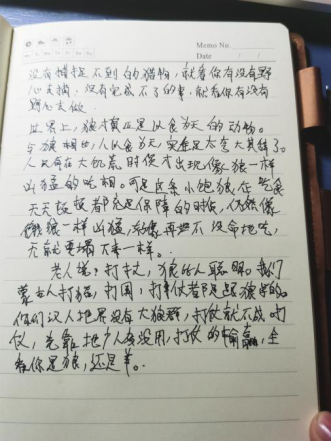 Memo No.
Date / /
没有捕捉不到的猎物，就看你有没有野
心去捕，没有完成不了的事，就看你有没有
野心去做。
世界上，狼才真正是以食为天的动物。
与狼相比，人以食为天，实在是太夸大其辞了。
人只有在大饥荒时候才出现像狼一样
凶猛的吃相。可是这条小饱狼在吃食
天天顿顿都充足保障的时候，仍然像
饿狼一样凶猛，好像再不没命地吃，
天就要塌下来一样。
老人说：打仗，狼比人聪明。我们
蒙古人打猎，打围，打仗都是跟狼学的。
你们汉人地界没有大狼群，打仗就不成。打
仗，光靠地广人多没用，打仗的输赢，全
看你是狼，还是羊。